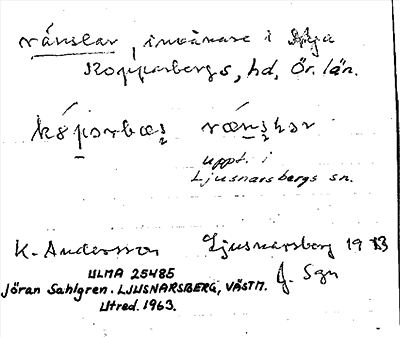 ränslar, invånare i
Kopparbergs, hd, Ör. län.
kóparbæʂ rænʂkar
uppt. i
Ljusnarsbergs sn.
K. Andersson Ljusnarsberg 19
J. Sgn
ULMA 25485
Jöran Sahlgren. LJUSNARSBERG, VÄSTM.
Utred. 1963.